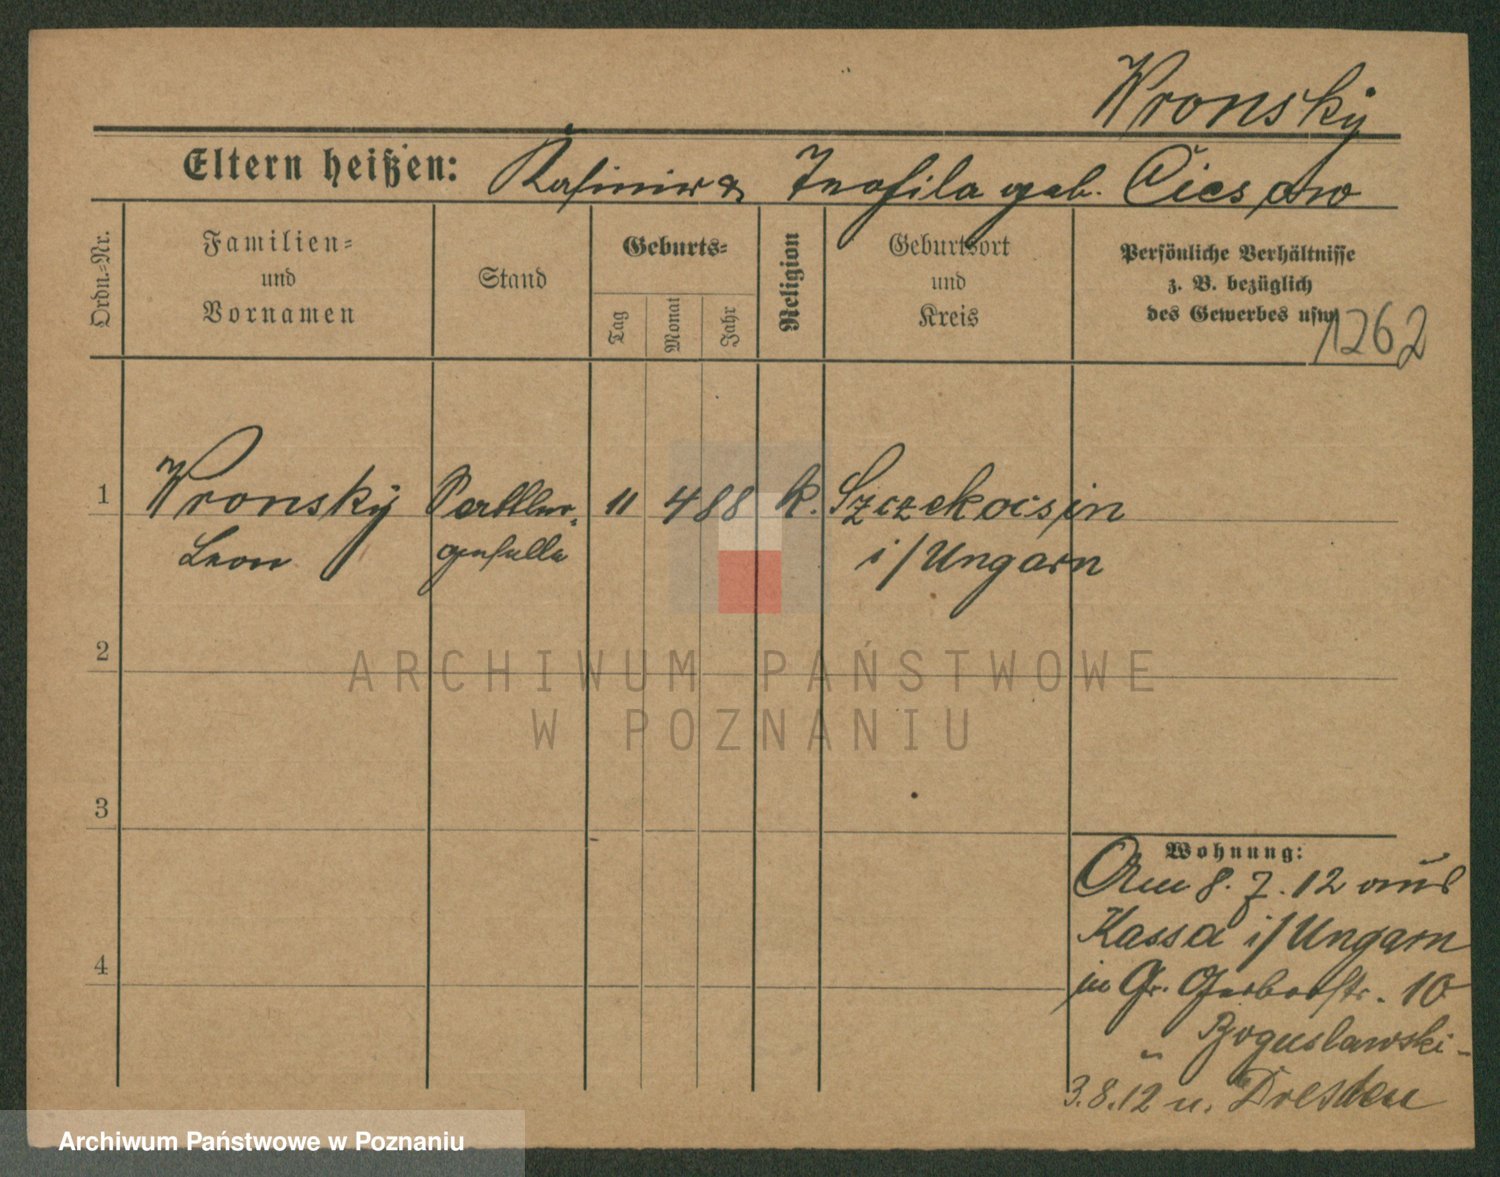 Wronsky
Eltern heißen: Kasimir & Teofila geb. Ciesow
Ordn.=Nr.
Familien=
und
Vornamen
Stand
Geburts=
Tag
Monat
Jahr
Religion
Geburtsort
und
Kreis
Persönliche Verhältnisse
z. B. bezüglich
des Gewerbes usw.
1262
1 Wronsky 11 4 88 k. Szczekocsin
Leon
geselle i/Ungarn
2
ARCHIWUM PAŃSTWOWE
W POZNANIU
3
4
Wohnung:
Am 8. 7. 12 aus
Kassa i/Ungarn
in Gr. Gerberstr. 10
" Boguslawski -
3.8.12 n. Dresden
Archiwum Państwowe w Poznaniu